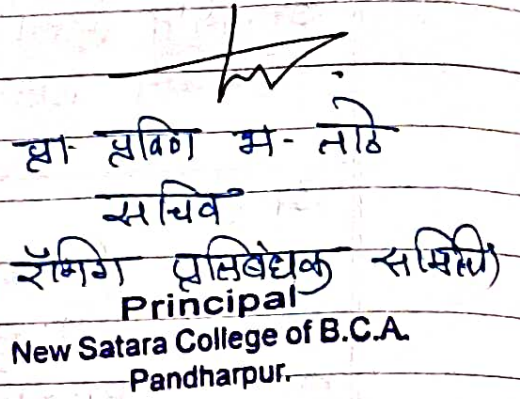 प्रा- प्रविण भ- ताठे
सचिव
रॅगिंग प्रतिबंधक समिती
Principal
New Satara College of B.C.A.
Pandharpur.